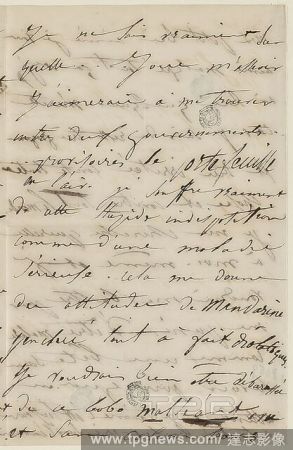 Je ne sais vraiment sur
quelle
J'aimerais à me trouver
entre deux gouvernements
provisoires le portefeuille
en l'air. Je souffre vraiment
de cette stupide indisposition
comme d'une maladie
sérieuse. Cela me donne
des attitudes de Mandarin
tout à fait
Je voudrais bien être débarrassé
de ce bobo malséant
et sans
www.tpgnews.com/達志影像